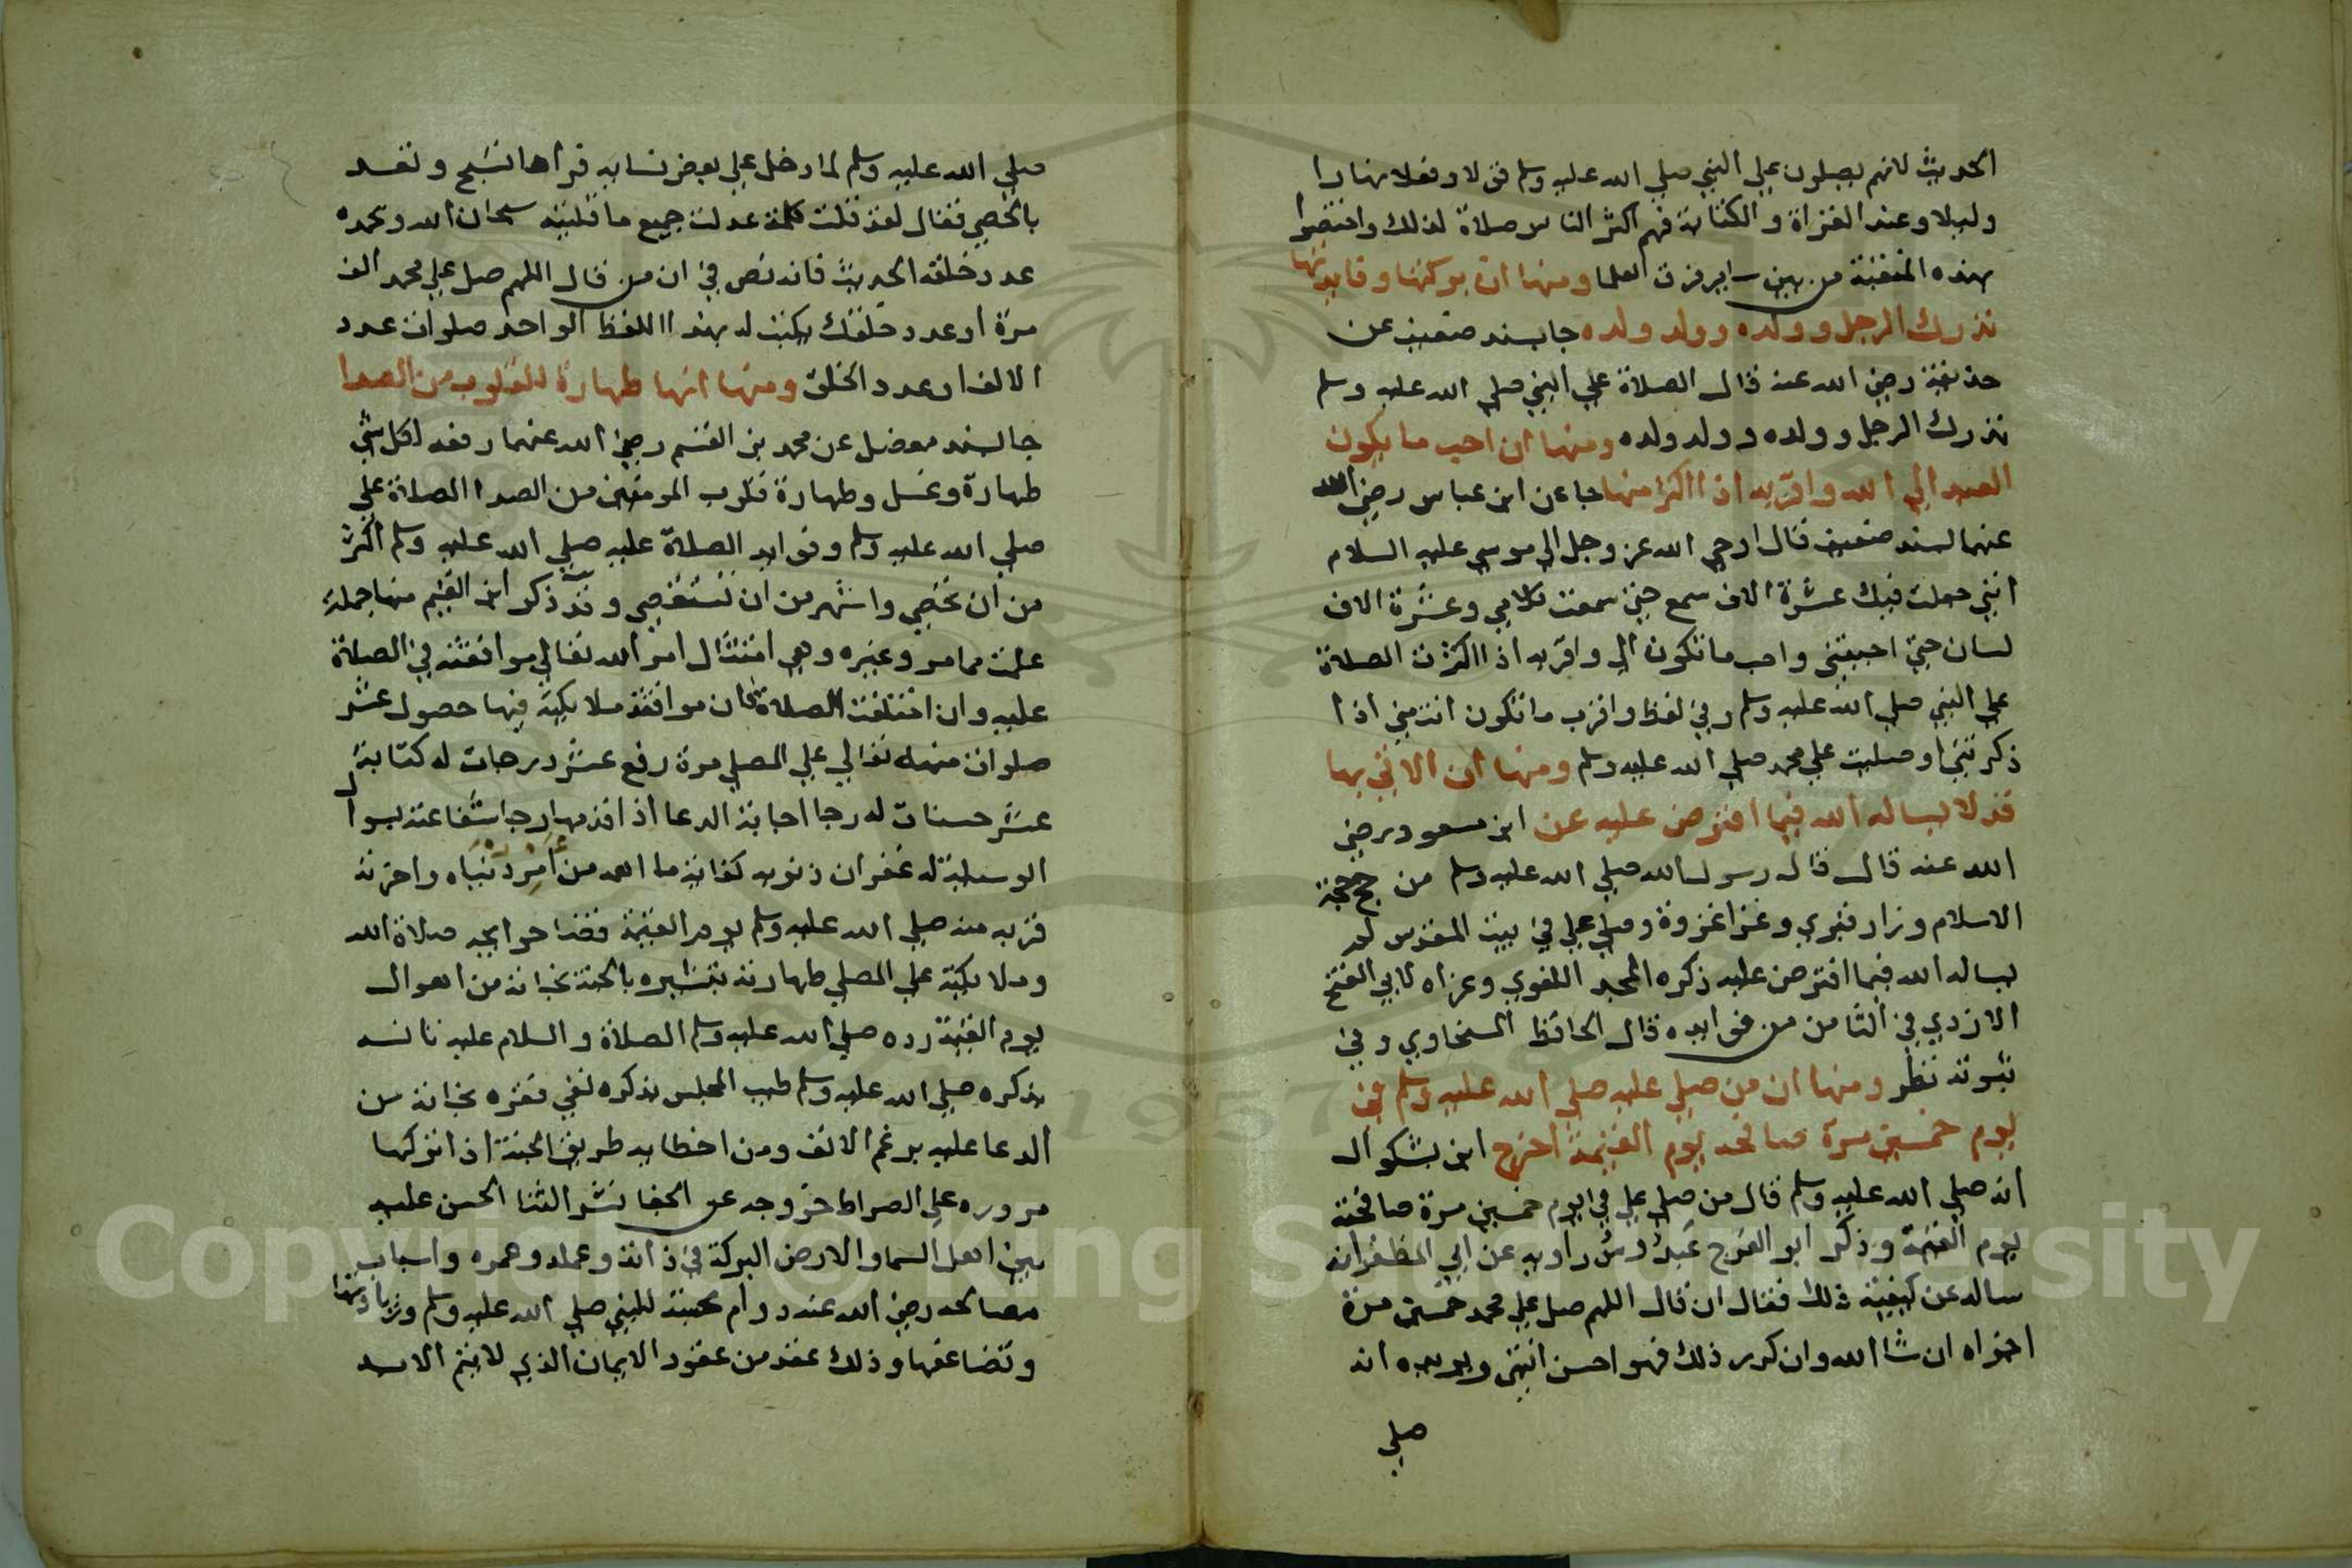 الحديث لانهم يصلون علي النبي صلي الله عليه وسلم قولا وفعلا نهارا
وليلا وعند القراة والكتابة فهم اكثر الناس صلاة لذلك واختصوا
بهذه المنقبة من بين ساير فرق العلما ومنها ان بركتها وفايدتها
تدرك الرجل وولده وولد ولده جا بسند ضعيف عن
حذيفة رضي الله عنه قال الصلاة علي النبي صلي الله عليه وسلم
تدرك الرجل وولده وولد ولده ومنها ان احب ما يكون
العبد الي الله واقربه اذا اكثر منها جا عن ابن عباس رضي الله
عنهما بسند ضعيف قال اوحي الله عز وجل الي موسي عليه السلام
انني جعلت فيك عشرة الاف سمع حتي سمعت كلامي وعشرة الاف
لسان حتي اجبتني واحب ما تكون الي واقربه اذا اكثرت الصلاة
علي النبي صلي الله عليه وسلم وفي لفظ واقرب ما تكون انت مني اذا
ذكرتني وصليت علي محمد صلي الله عليه وسلم ومنها ان الاتي بها
قد لا يساله الله فيما افترض عليه عن ابن مسعود رضي
الله عنه قال قال رسول الله صلي الله عليه وسلم من حج حجة
الاسلام وزار قبري وغزا غزوة وصلي علي في بيت المقدس لم
يساله الله فيما افترض عليه ذكره المجد اللغوي وعزاه لابي الفتح
الازدي في الثامن من فوايده قال الحافظ السخاوي وفي
ثبوته نظر ومنها ان من صلي عليه صلي الله عليه وسلم في
يوم خمسين مرة صافحه يوم القيمة اخرج ابن بشكوال
انه صلي الله عليه وسلم قال من صلي علي في يوم خمسين مرة صافحته
يوم القيمة وذكر ابو الفرج عبدوس راويه عن ابي المظفر انه
ساله عن كيفية ذلك فقال ان قال اللهم صل علي محمد خمسين مرة
اجزاه ان شا الله وان كرر ذلك فهو احسن انتهي ويويده انه
صلي
صلي الله عليه وسلم لما دخل علي بعض نسايه فراها تسبح وتعد
بالحصي فقال لقد قلت كلمة عدلت جميع ما قلتيه سبحان الله وبحمده
عدد خلقه الحديث فانه نص في ان من قال اللهم صل علي محمد الف
مرة او عدد خلقك يكتب له بهذا اللفظ الواحد صلوات عدد
الالف او عدد الخلق ومنها انها طهارة للقلوب من الصدا
جا بسند معضل عن محمد بن القسم رضي الله عنهما رفعه لكل شي
طهارة وغسل وطهارة قلوب المومنين من الصدا الصلاة علي
صلي الله عليه وسلم وفوايد الصلاة عليه صلي الله عليه وسلم اكثر
من ان تحصي واشهر من ان تستقصي وقد ذكر ابن القيم منها جملة
علمت مما مر وغيره وهي امتثال امر الله تعالي موافقته في الصلاة
عليه وان اختلفت الصلاتان موافقة ملايكته فيها حصول عشر
صلوات منه تعالي علي المصلي مرة رفع عشر درجات له كتابة
عشر حسنات له رجا اجابة الدعا اذا قدمها رجا شفاعته بسوال
الوسيلة له غفران ذنوبه كفاية ما اهمه من امر دنياه واخرته
قربه منه صلي الله عليه وسلم يوم القيمة قضا حوايجه صلاة الله
وملايكته علي المصلي طهارته تبشيره بالجنة نجاته من اهوال
يوم القيمة رده صلي الله عليه وسلم الصلاة والسلام عليه
يذكره صلي الله عليه وسلم طيب المجلس بذكره نفي فقره نجاته من
الدعا عليه برغم الانف ومن اخطايه طريق الجنة اذا تركها
مروره علي الصراط خروجه عن الجفا نشر الثنا الحسن عليه
بين اهل السما والارض البركة في ذاته وعمله وعمره واسباب
مصالحه رضي الله عنه دوام محبته للنبي صلي الله عليه وسلم وزيادتها
وتضاعفها وذلك عقد من عقود الايمان الذي لا يتم الا به
Copyright © King Saud University
1957